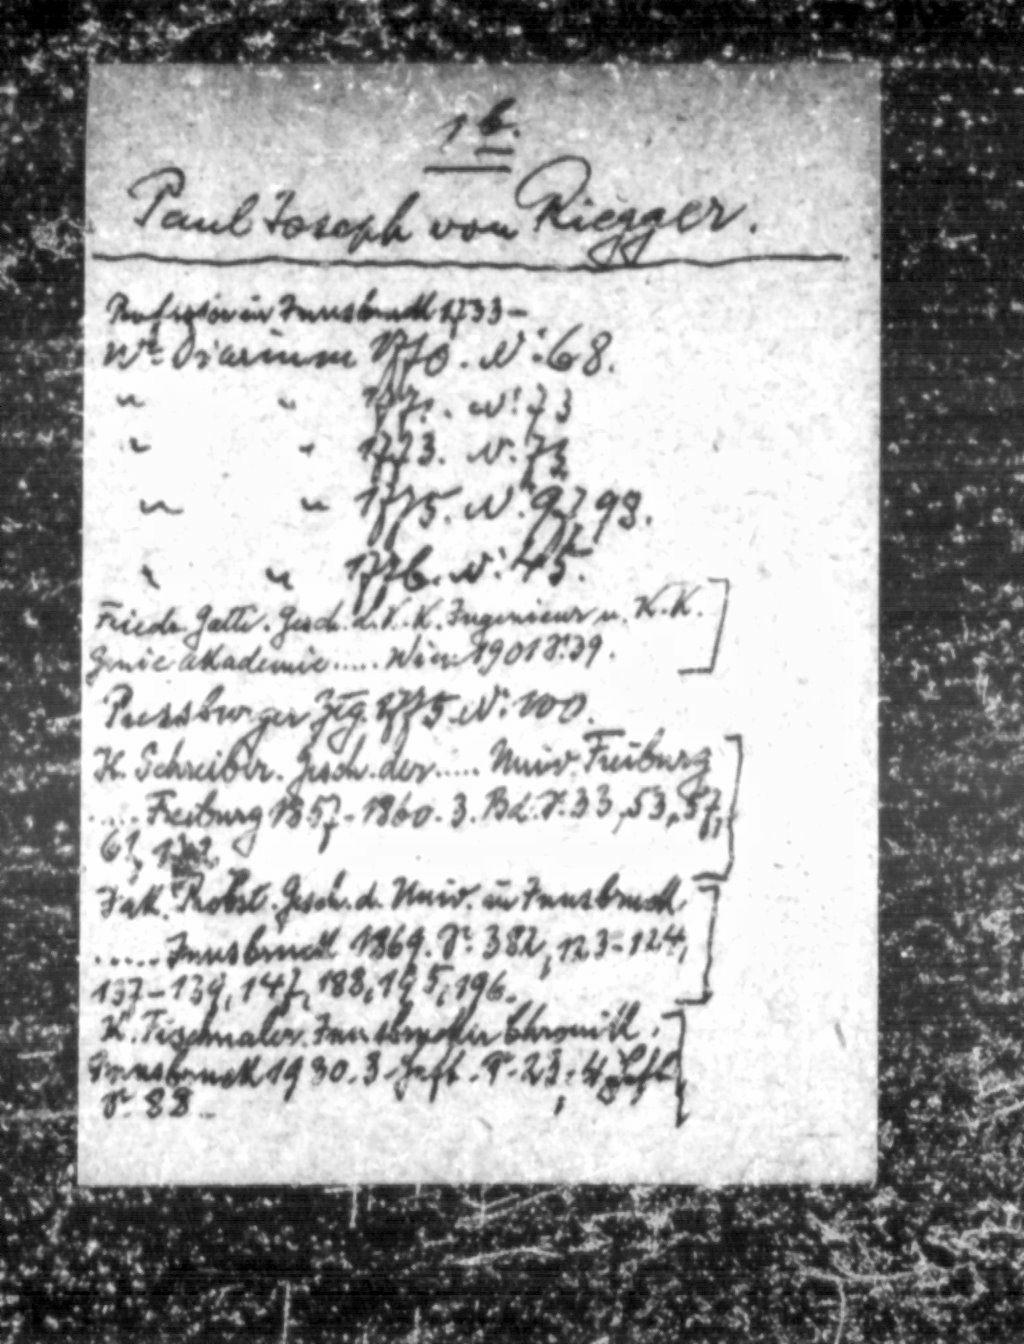 1 b.
Paul Joseph von Riegger.
Professor in Innsbruck 1733 –
Wr. Diarium 1770. Nr. 68.
" " 1771. Nr. 73
" " 1773. Nr. 73
" " 1775. Nr. 97, 98.
" " 1776. Nr. 45.
Friedr. Gatti. Gesch. d. K. K. Ingenieur u. K. K.
Genie akademie ..... Wien 1901 S. 39.
Pressburger Ztg. 1775 Nr. 100.
H. Schreiber. Gesch. der ..... Univ. Freiburg
..... Freiburg 1857 - 1860. 3. Bd. S. 33, 53, 57,
61,
Jak. Probst. Gesch. d. Univ. in Innsbruck
..... Innsbruck 1869. S. 382, 123 - 124,
137 - 139, 147, 188, 195, 196.
K. Fischnaler. Innsbrucker Chronik.
Innsbruck 1930. 3 Heft. S. 23, 4 Heft
S. 88